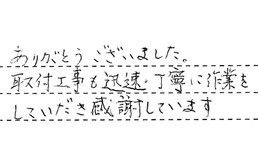 ありがとうございました。
取付工事も迅速・丁寧に作業を
していだき感謝しています